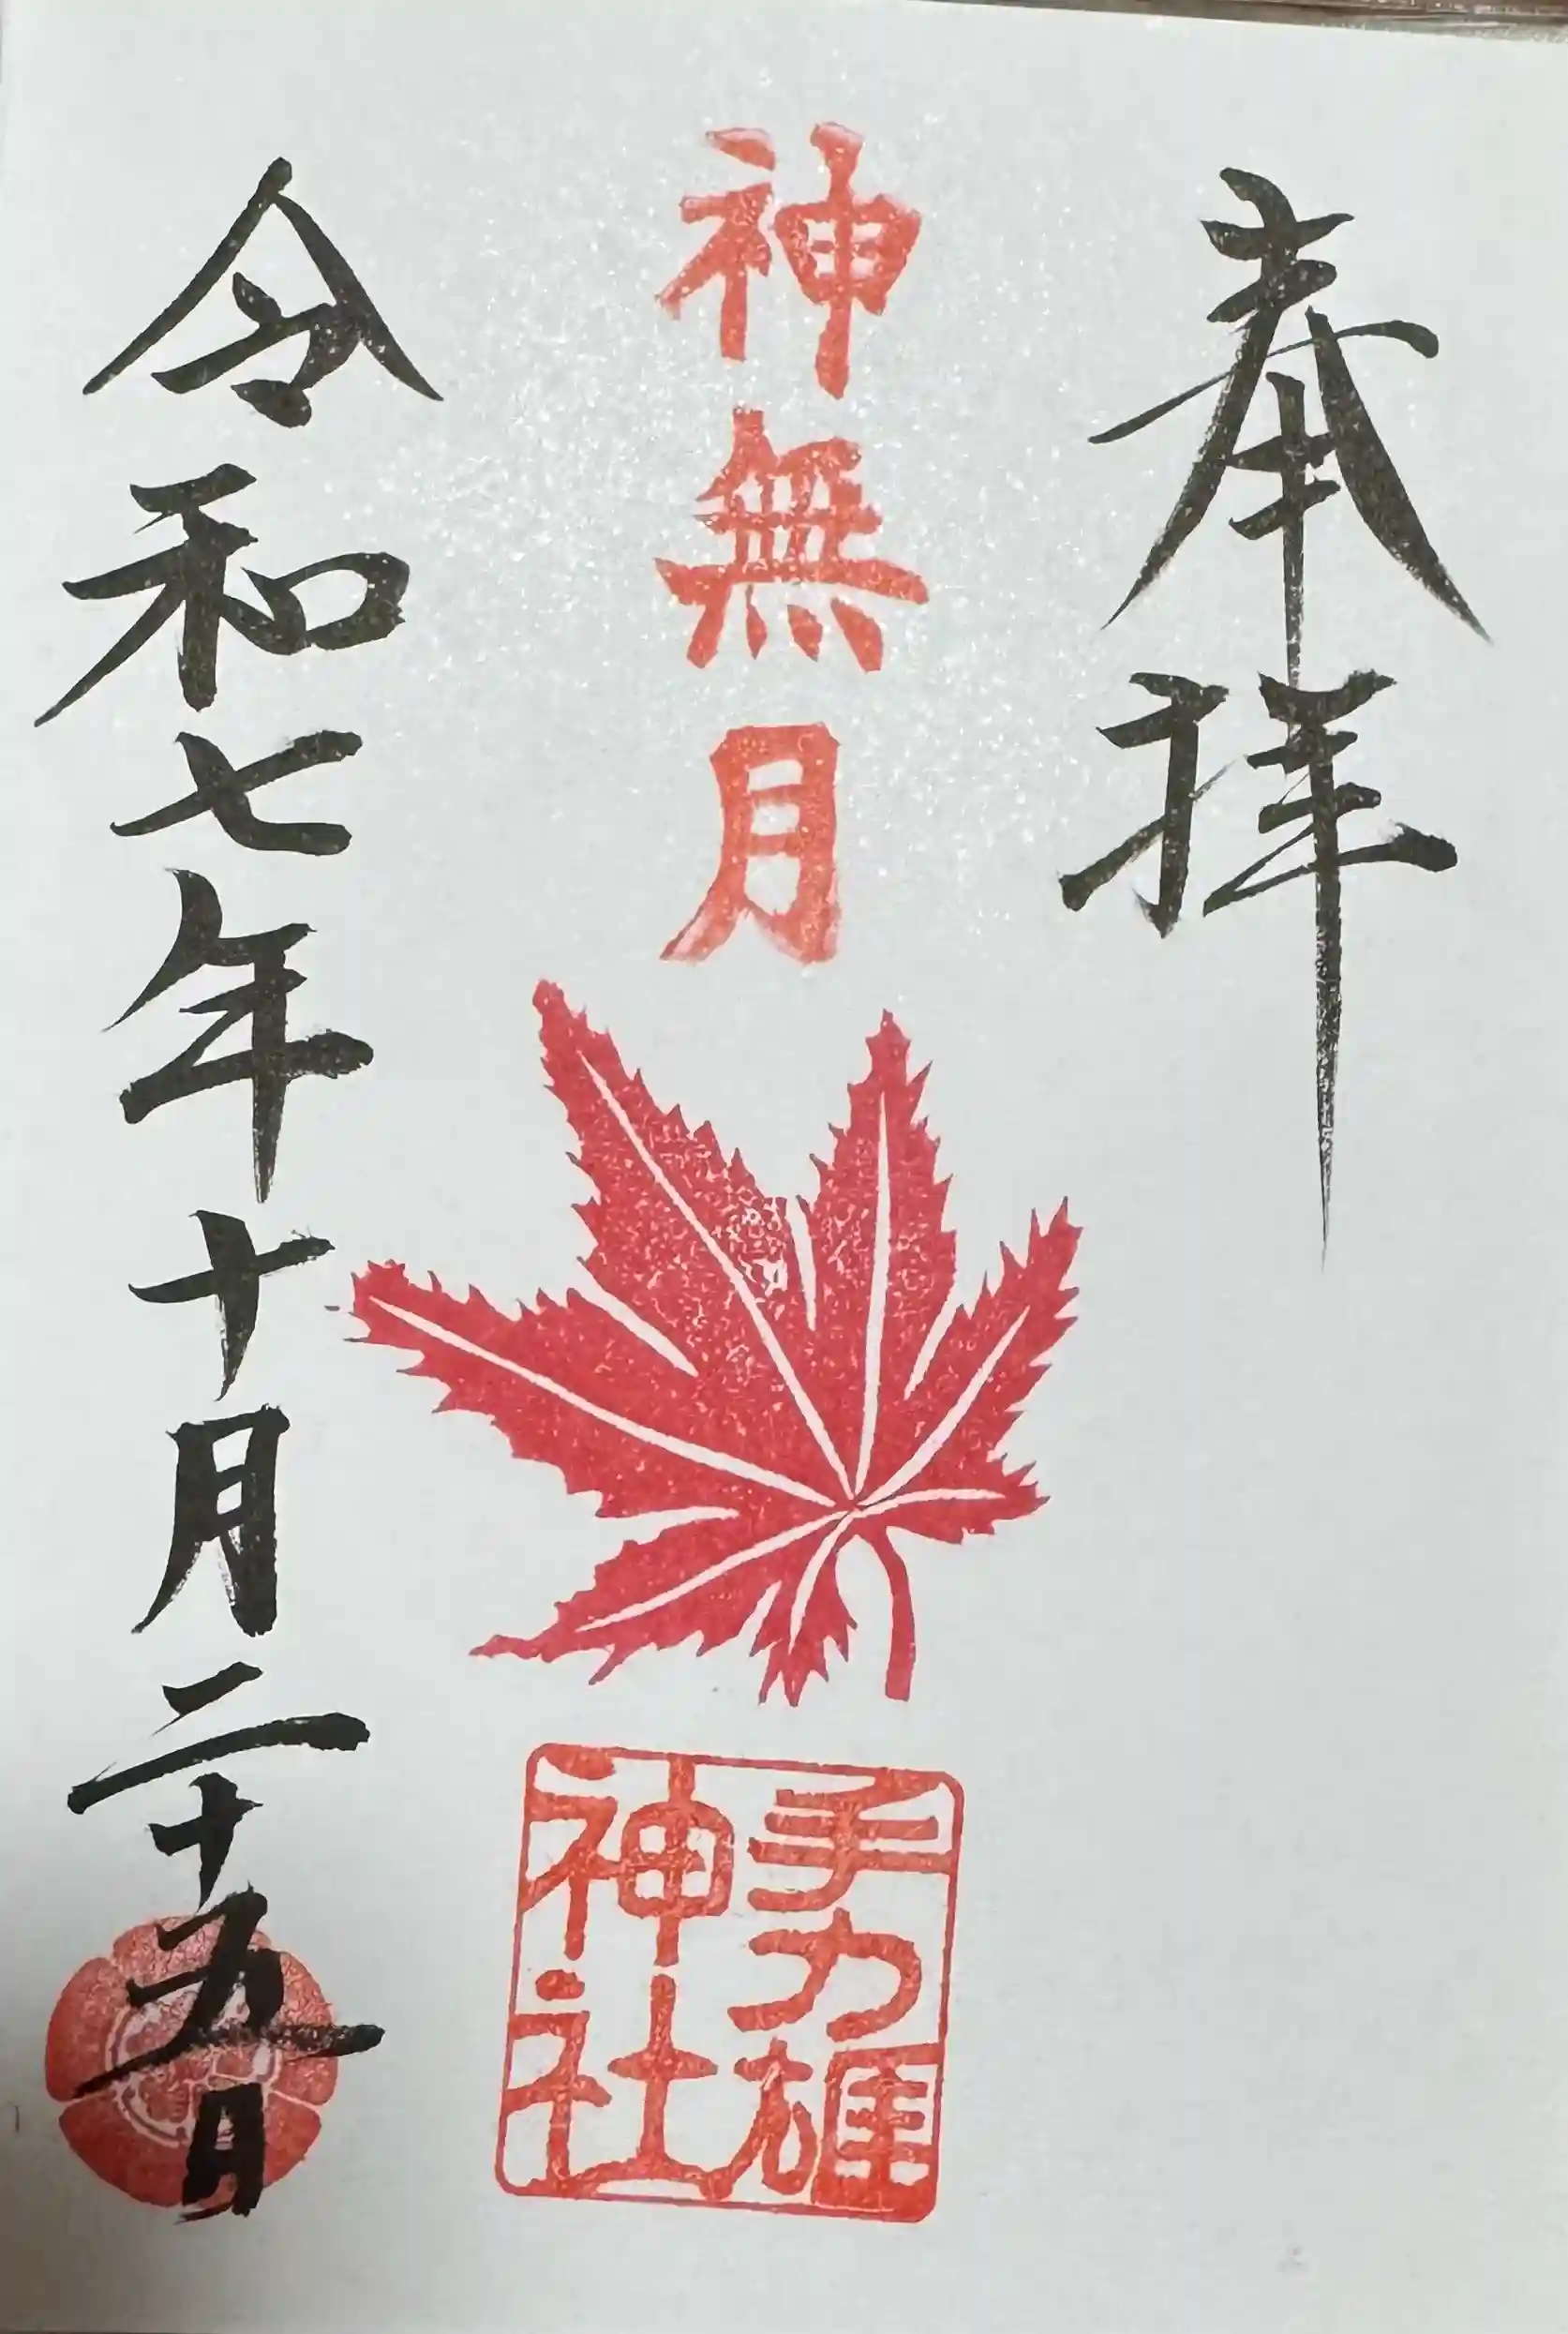 奉拝
神無月
手力雄
神社
令和七年十月二十五日